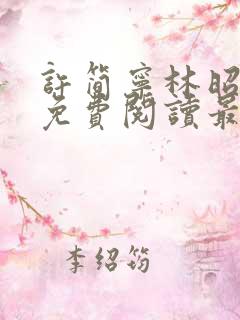 許簡寧林昭
免費閱讀最
李紹筠